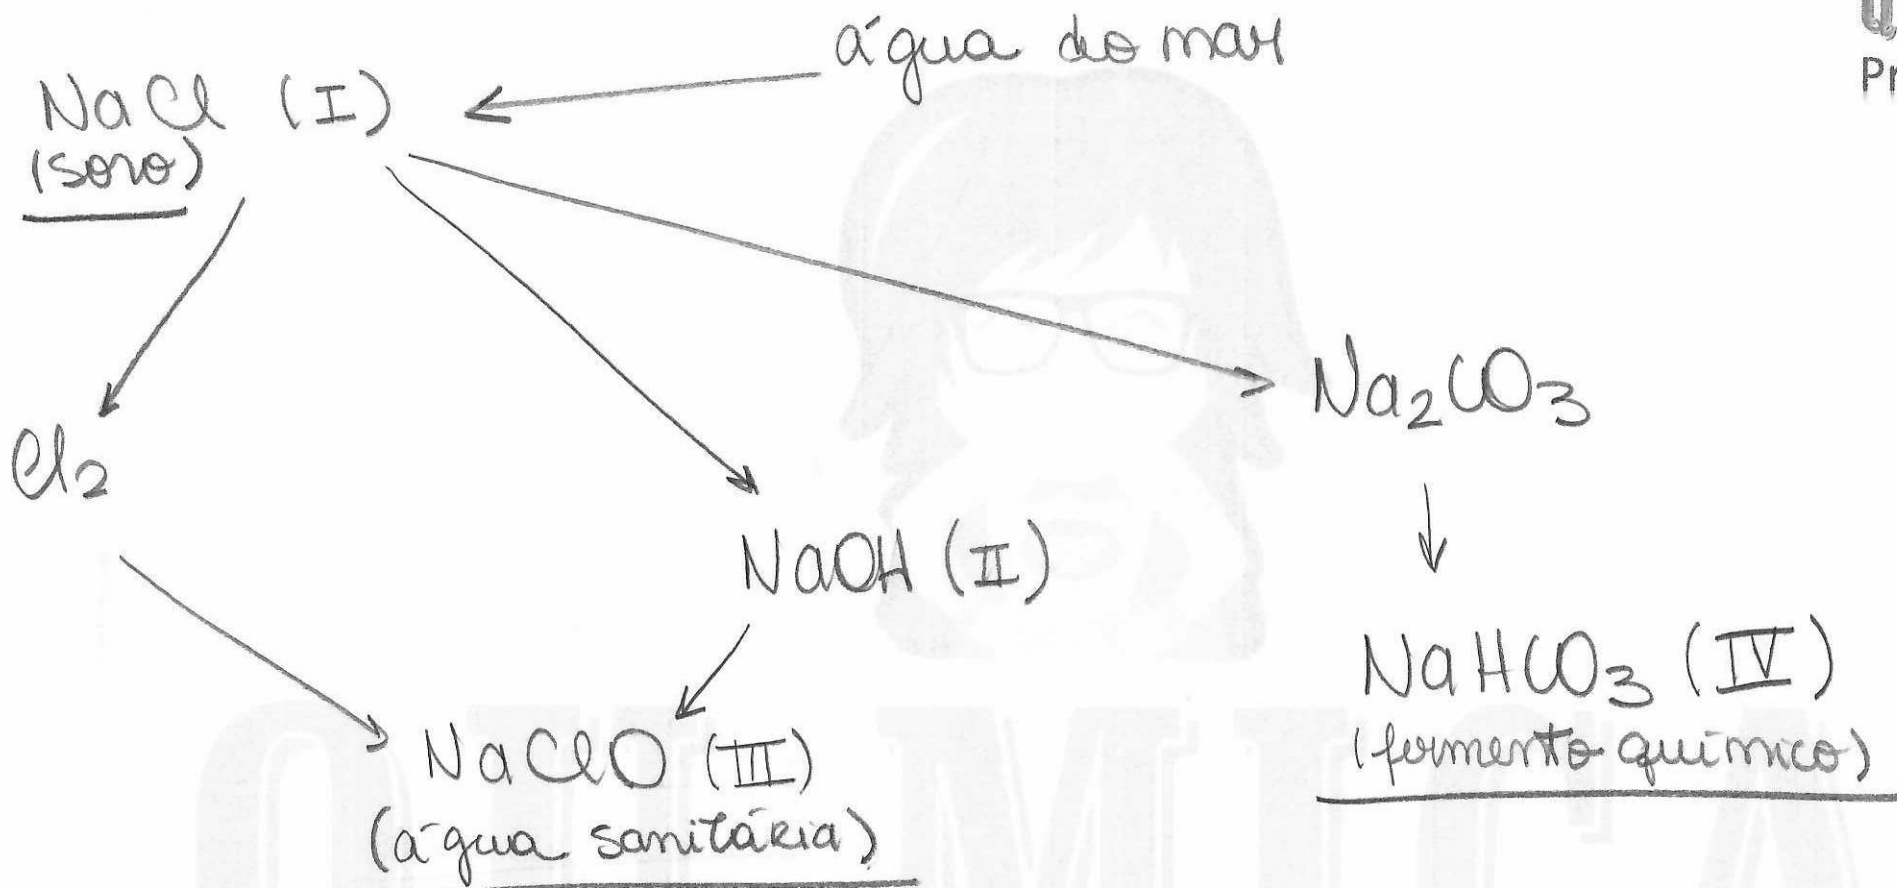 água do mar
NaCl (I)
(soro)
Cl₂
Na₂CO₃
NaOH (II)
NaHCO₃ (IV)
(fermento químico)
NaClO (III)
(água sanitária)
QUÍMICA